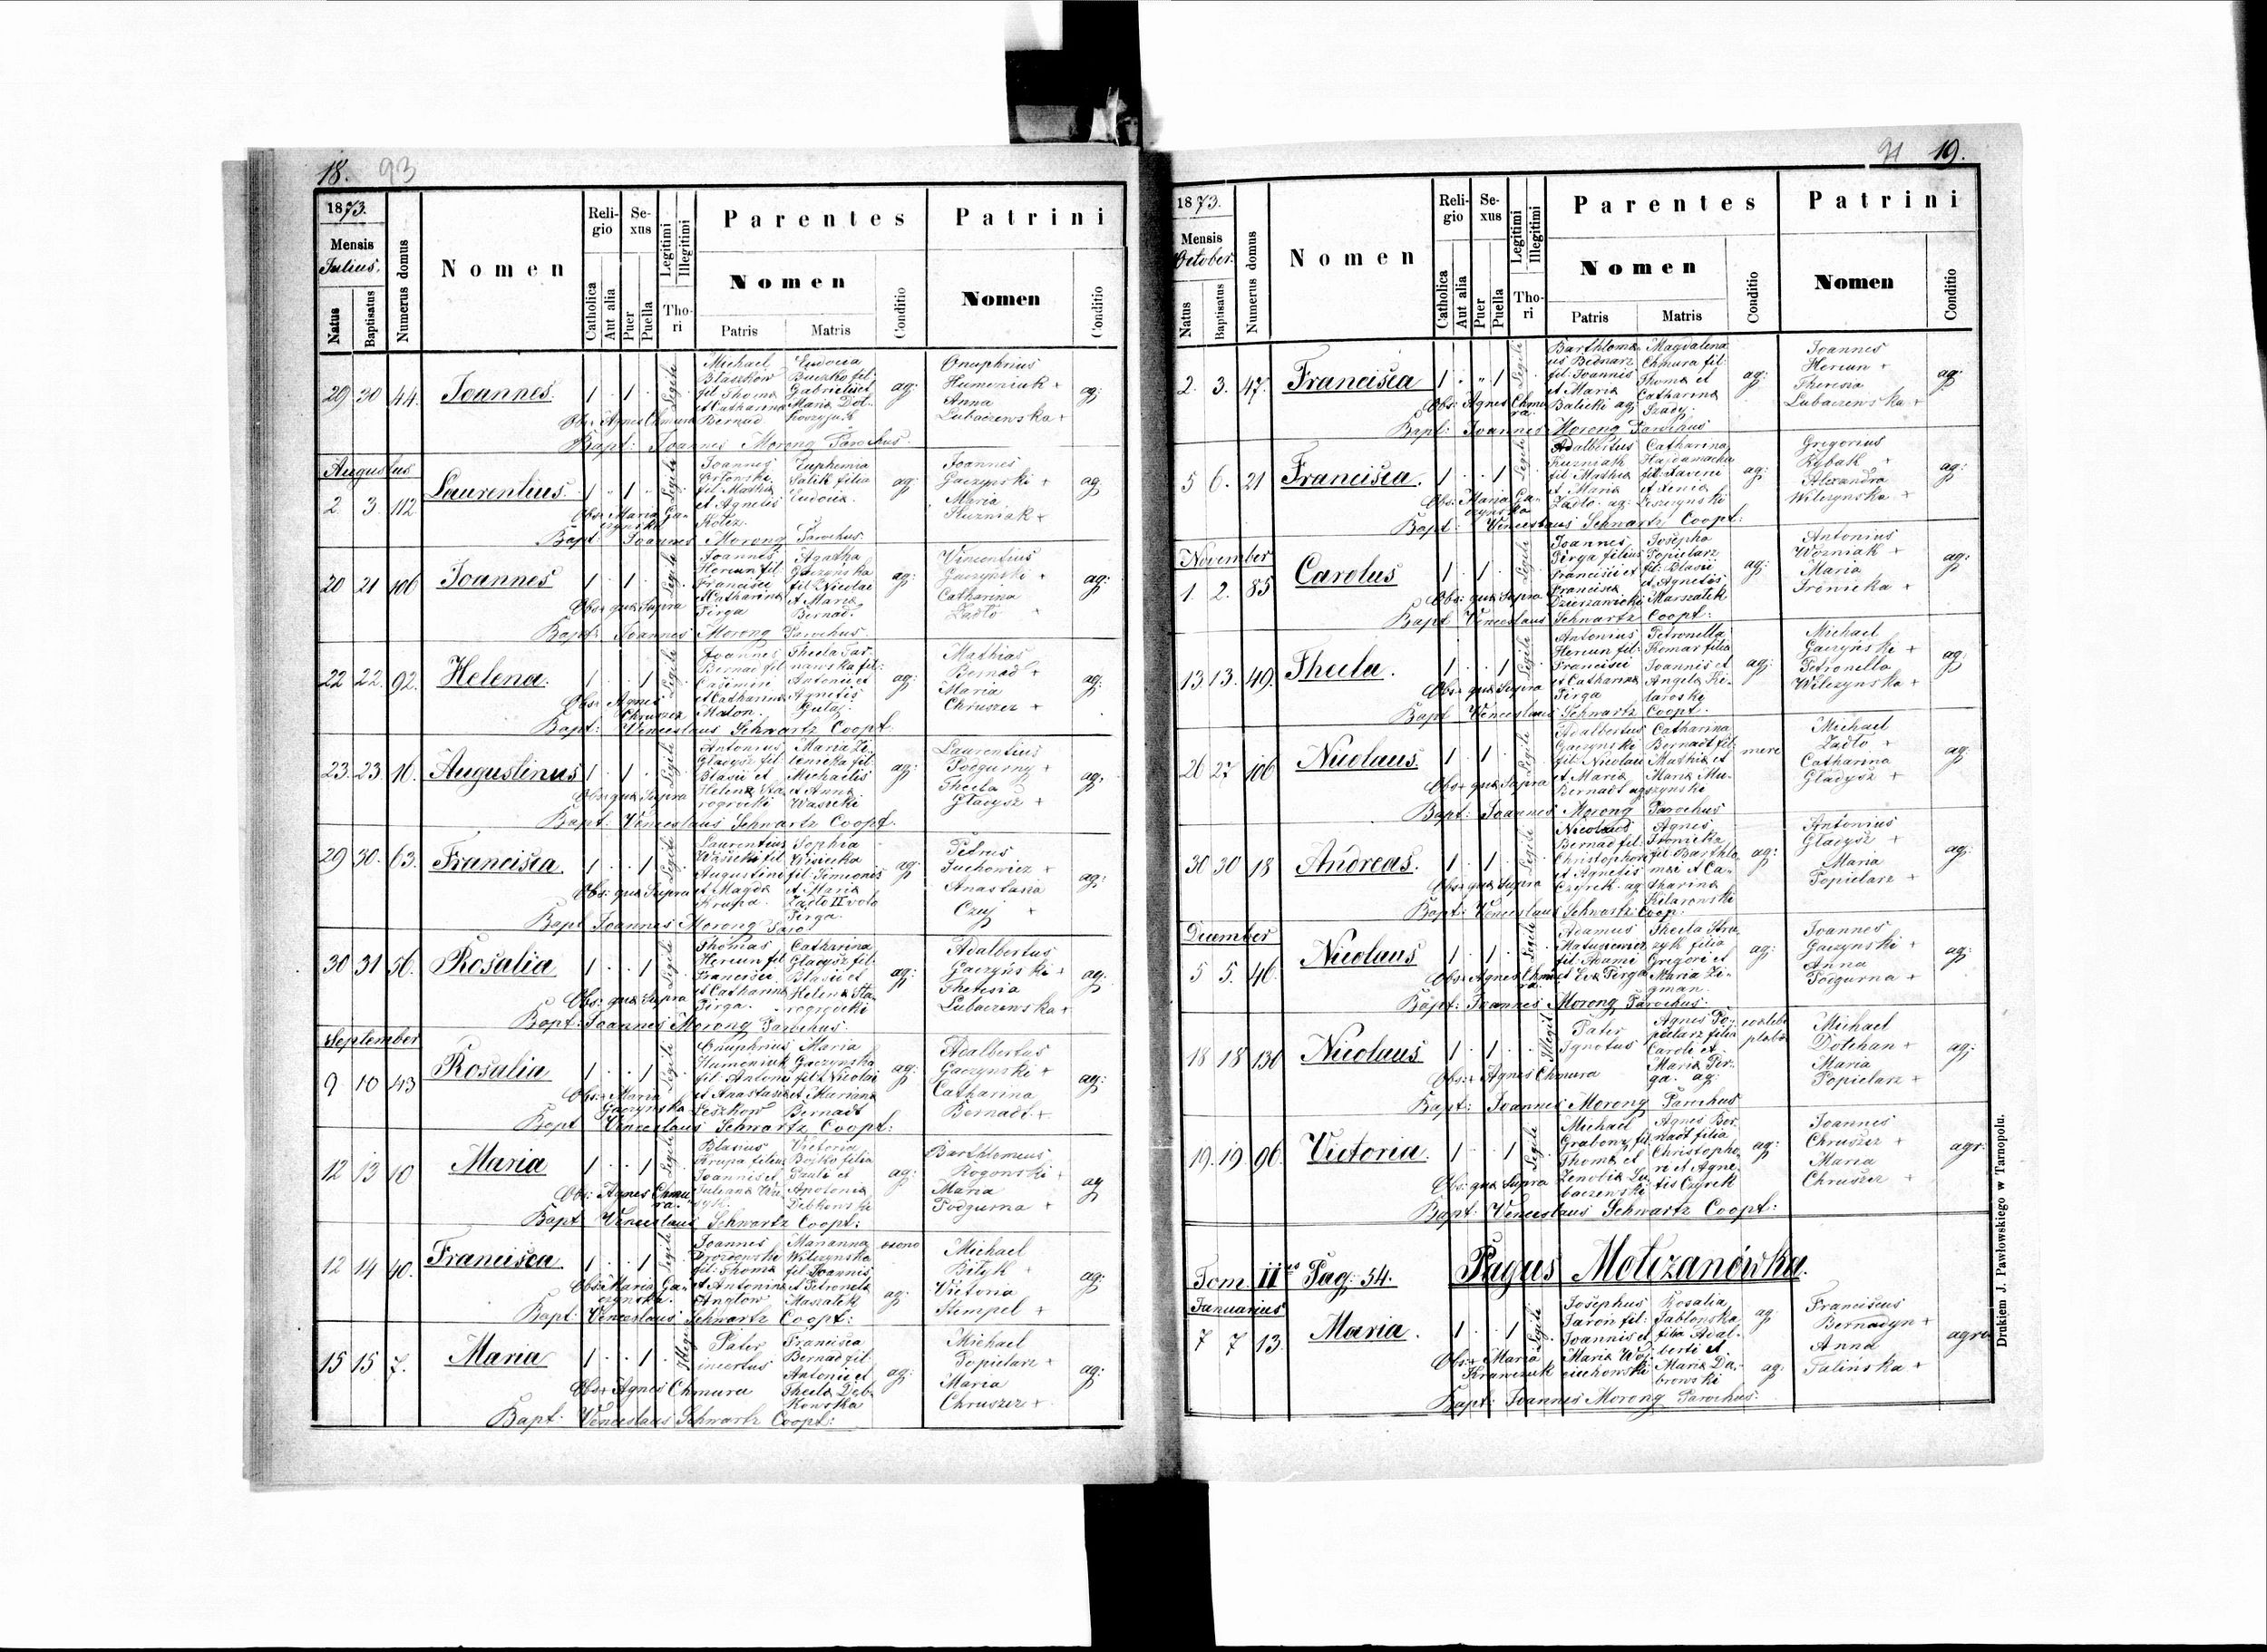 18. 93
1873.
Mensis
Julius.
Natus
Baptisatus
Numerus domus
Nomen
Religio
Catholica
Aut alia
Sexus
Puer
Puella
Legitimi
Illegitimi
Thori
Parentes
Nomen
Patris
Matris
Conditio
Patrini
Nomen
Conditio
29 30 44. Joannes. 1 1 Legiti
Michael
fil: Thomæ
et Catharinæ
Bernad
Eudocia
Buczko fil:
Gabrielis et
Mariæ
ag:
Onuphrius
Humeniuk +
Anna
Lubaczewska +
ag:
Obs: Agnes Chmura
Bapt: Joannes Morong Parochus.
Augustus
2. 3. 112 Laurentius. 1 1 Legiti
Joannes
fil: Mathiæ
et Agnetis
Kolcz.
Euphemia
Salik filia
Eudociæ.
ag:
Joannes
Gaczynski +
Maria
Kuzniak +
ag
Obs: Maria Gaczynska
Bapt Joannes Morong Parochus.
20 21 106 Joannes 1 1 Legiti
Joannes
Hercun fil:
Francisci
et Catharinæ
Pirga
Agatha
Gaczynska
fil: Nicolai
et Mariæ
Bernad.
ag:
Vincentius
Gaczynski +
Catharina
Zadło +
ag:
Obs: quæ Supra
Bapt: Joannes Morong Parochus.
22 22. 92. Helena. 1 1 Legiti
Joannes
Bernad fil:
Casimiri
et Catharinæ
Maton.
Thecla Tar-
nawska fil:
Antonii et
Agnetis
Gulaj.
ag:
Mathias
Bernad +
Maria
Chruszcz +
ag:
Obs: Agnes
Chruszcz
Bapt: Venceslaus Schwartz Coopt.
23. 23. 16. Augustinus 1 1 Legiti
Antonius
Gładysz fil:
Blasii et
Helenæ Sta-
rogrocki
Maria Zi-
lenicka fil:
Michaelis
et Annæ
Wasicki
ag:
Laurentius
Podgurny +
Thecla
Gładysz +
ag:
Obs: quæ Supra
Bapt: Venceslaus Schwartz Coopt.
29 30. 63. Francisca. 1 1 Legiti
Laurentius
Wasicki fil:
Augustini
et Magdæ
Krupa.
Sophia
Wisicka
fil: Simeonis
et Mariæ
Zadło II voto
Pirga.
ag:
Petrus
Juchowicz +
Anastasia
Czuj +
ag:
Obs: quæ Supra
Bapt Joannes Morong Paro:
30 31 56. Rosalia 1 1 Legiti
Thomas
Hercun fil:
Francisci
et Catharinæ
Pirga.
Catharina
Gładysz fil:
Blasii et
Helenæ Sta-
rogrocki
ag:
Adalbertus
Gaczynski +
Theresia
Lubaczewska +
ag.
Obs: quæ Supra
Bapt: Joannes Morong Parochus.
September
9 10 43 Rosalia 1 1 Legiti
Onuphrius
Humeniuk
fil: Antonii
et Anastasiæ
Leszkow
Maria
Gaczynska
fil: Nicolai
et Marianæ
Bernadt
ag:
Adalbertus
Gaczynski +
Catharina
Bernadt +
ag:
Obs: Maria
Gaczynska
Bapt Venceslaus Schwartz Coopt:
12 13 10 Maria 1 1 Legiti
Blasius
Krupa filius
Joannis et
Julianæ
Victoria
Bojko filia
Pauli et
Apoloniæ
Debkowski
ag:
Barthlomeus
Rogonski +
Maria
Podgurna +
ag
Obs: Agnes Chmura.
Bapt Venceslaus Schwartz Coopt:
12 14 40. Francisca. 1 1 Legiti
Joannes
Drozdowski
fil: Thomæ
et Antoninæ
Anglow
Marianna
Wilczynska
fil: Joannis
et Petronelæ
Maszalek
ag:
Michael
Bityk +
Victoria
Stempel +
ag:
Obs: Maria Gaczynska.
Bapt: Venceslaus Schwartz Coopt:
15 15 7. Maria 1 1 Illegi
Pater
incertus
Francisca
Bernad fil:
Antonii et
Theclæ Deb-
kowska
ag:
Michael
Popielarz +
Maria
Chruszcz +
ag:
Obs: Agnes Chmura
Bapt: Venceslaus Schwartz Coopt:
91 19.
1873.
Mensis
October
Natus
Baptisatus
Numerus domus
Nomen
Religio
Catholica
Aut alia
Sexus
Puer
Puella
Legitimi
Illegitimi
Thori
Parentes
Nomen
Patris
Matris
Conditio
Patrini
Nomen
Conditio
2. 3. 47. Francisca 1 1 Legiti
Barthlomæ-
us Bednarz
fil: Joannis
et Mariæ
Balicki ag:
Magdalena
Chmura fil:
Thomæ et
Catharinæ
Szady.
ag:
Joannes
Hercun +
Theresia
Lubaczewska +
ag:
Obs: Agnes Chmura.
Bapt: Joannes Morong Parochus
5 6. 21 Francisca. 1 1 Legiti
Adalbertus
Kuzniak
fil: Mathiæ
et Mariæ
Zadło. ag:
Catharina
Hajdamacha
fil: Xaverii
et Xeniæ
Leszczynski
ag:
Gregorius
Rybak +
Alexandra
Wilczynska +
ag:
Obs: Maria Gaczynska
Bapt: Venceslaus Schwartz Coopt:
November
1. 2. 85 Carolus 1 1 Legiti
Joannes
Pirga filius
Francisci et
Franciscæ
Dzierzawicki
Josepha
Popielarz
fil: Blasii
et Agnetis
Marszalek
ag:
Antonius
Wozniak +
Maria
Fronicka +
ag:
Obs: quæ Supra
Bapt Venceslaus Schwartz Coopt:
13 13. 49. Thecla. 1 1 Legiti
Antonius
Hercun fil:
Francisci
et Catharinæ
Pirga
Petronella
Komar filia
Joannis et
Angelæ Ki-
laroski
ag:
Michael
Gaczynski +
Petronella
Wilczynska +
ag:
Obs: quæ Supra
Bapt Venceslaus Schwartz Coopt:
26 27 106 Nicolaus. 1 1 Legiti
Adalbertus
Gaczynski
fil: Nicolai
et Mariæ
Bernadt ag
Catharina
Bernadt fil:
Mathiæ et
Mariæ Mu-
szynski
merc
Michael
Zadło +
Catharina
Gladysz +
ag:
Obs: quæ Supra
Bapt: Joannes Morong Parochus
30 30 18 Andreas. 1 1 Legiti
Nicolaus
Bernad fil:
Christophori
et Agnetis
Czyrek. ag
Agnes
Fronicka
fil: Barthlo-
mæi et Ca-
tharinæ
Kilarowski
ag:
Antonius
Gładysz +
Maria
Popielarz +
ag:
Obs: quæ Supra
Bapt: Venceslaus Schwartz Coop:
December
5 5. 46. Nicolaus 1 1 Legiti
Adamus
Matusiewicz
fil: Adami
et Evæ Pirga
Thecla Stra-
zyk filia
Gregorii et
Mariæ Zi-
gman.
ag:
Joannes
Gaczynski +
Anna
Podgurna +
ag:
Obs: Agnes Chmura.
Bapt: Joannes Morong Parochus:
18 18 130 Nicolaus 1 1 Illegit
Pater
Ignotus
Agnes Po-
pielarz filia
Caroli et
Mariæ Per-
ga. ag:
Michael
Dolchan +
Maria
Popielarz +
ag:
Obs: Agnes Chmura
Bapt: Joannes Morong Parochus
19. 19 96. Victoria. 1 1 Legiti
Michael
Grabony fil:
Thomæ et
Zenobiæ Lu-
baczewski
Agnes Ber-
nadt filia
Christopho-
ri et Agne-
tis Czyrek
ag:
Joannes
Chruszcz +
Maria
Chruszcz +
agr:
Obs: quæ Supra
Bapt: Venceslaus Schwartz Coopt:
Tom. II us Pag: 54. Pagus Mołczanówka.
Januarius
7 7 13. Maria. 1 1 Legiti
Josephus
Jaron fil:
Joannis et
Mariæ Woj-
ciuchowski
Rosalia
Jablonska
filia Adal-
berti et
Mariæ Da-
browski
ag:
ag:
Franciscus
Bernadyn +
Anna
Talińska +
agr
Obs: Maria
Krawczuk
Bapt: Joannes Morong Parochus:
Drukiem J. Pawłowskiego w Tarnopolu.